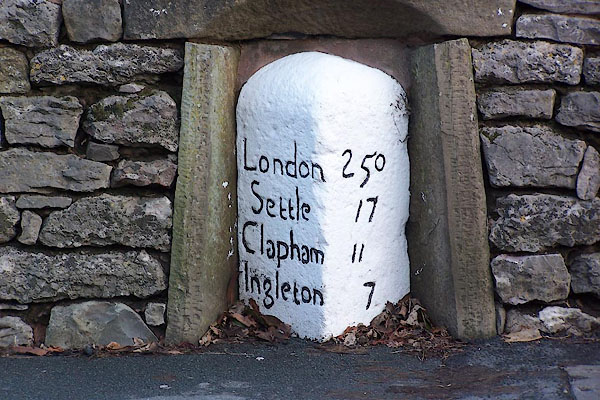 London 250
Settle 17
Clapham 11
Ingleton 7